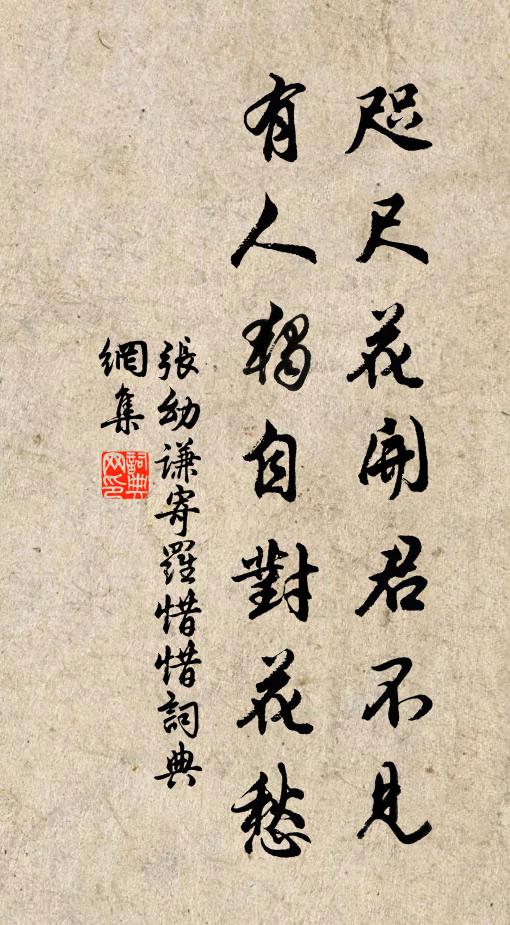 咫尺花開君不見
有人獨自對花愁
張幼謙寄羅惜惜詞典
網集
詞典網印